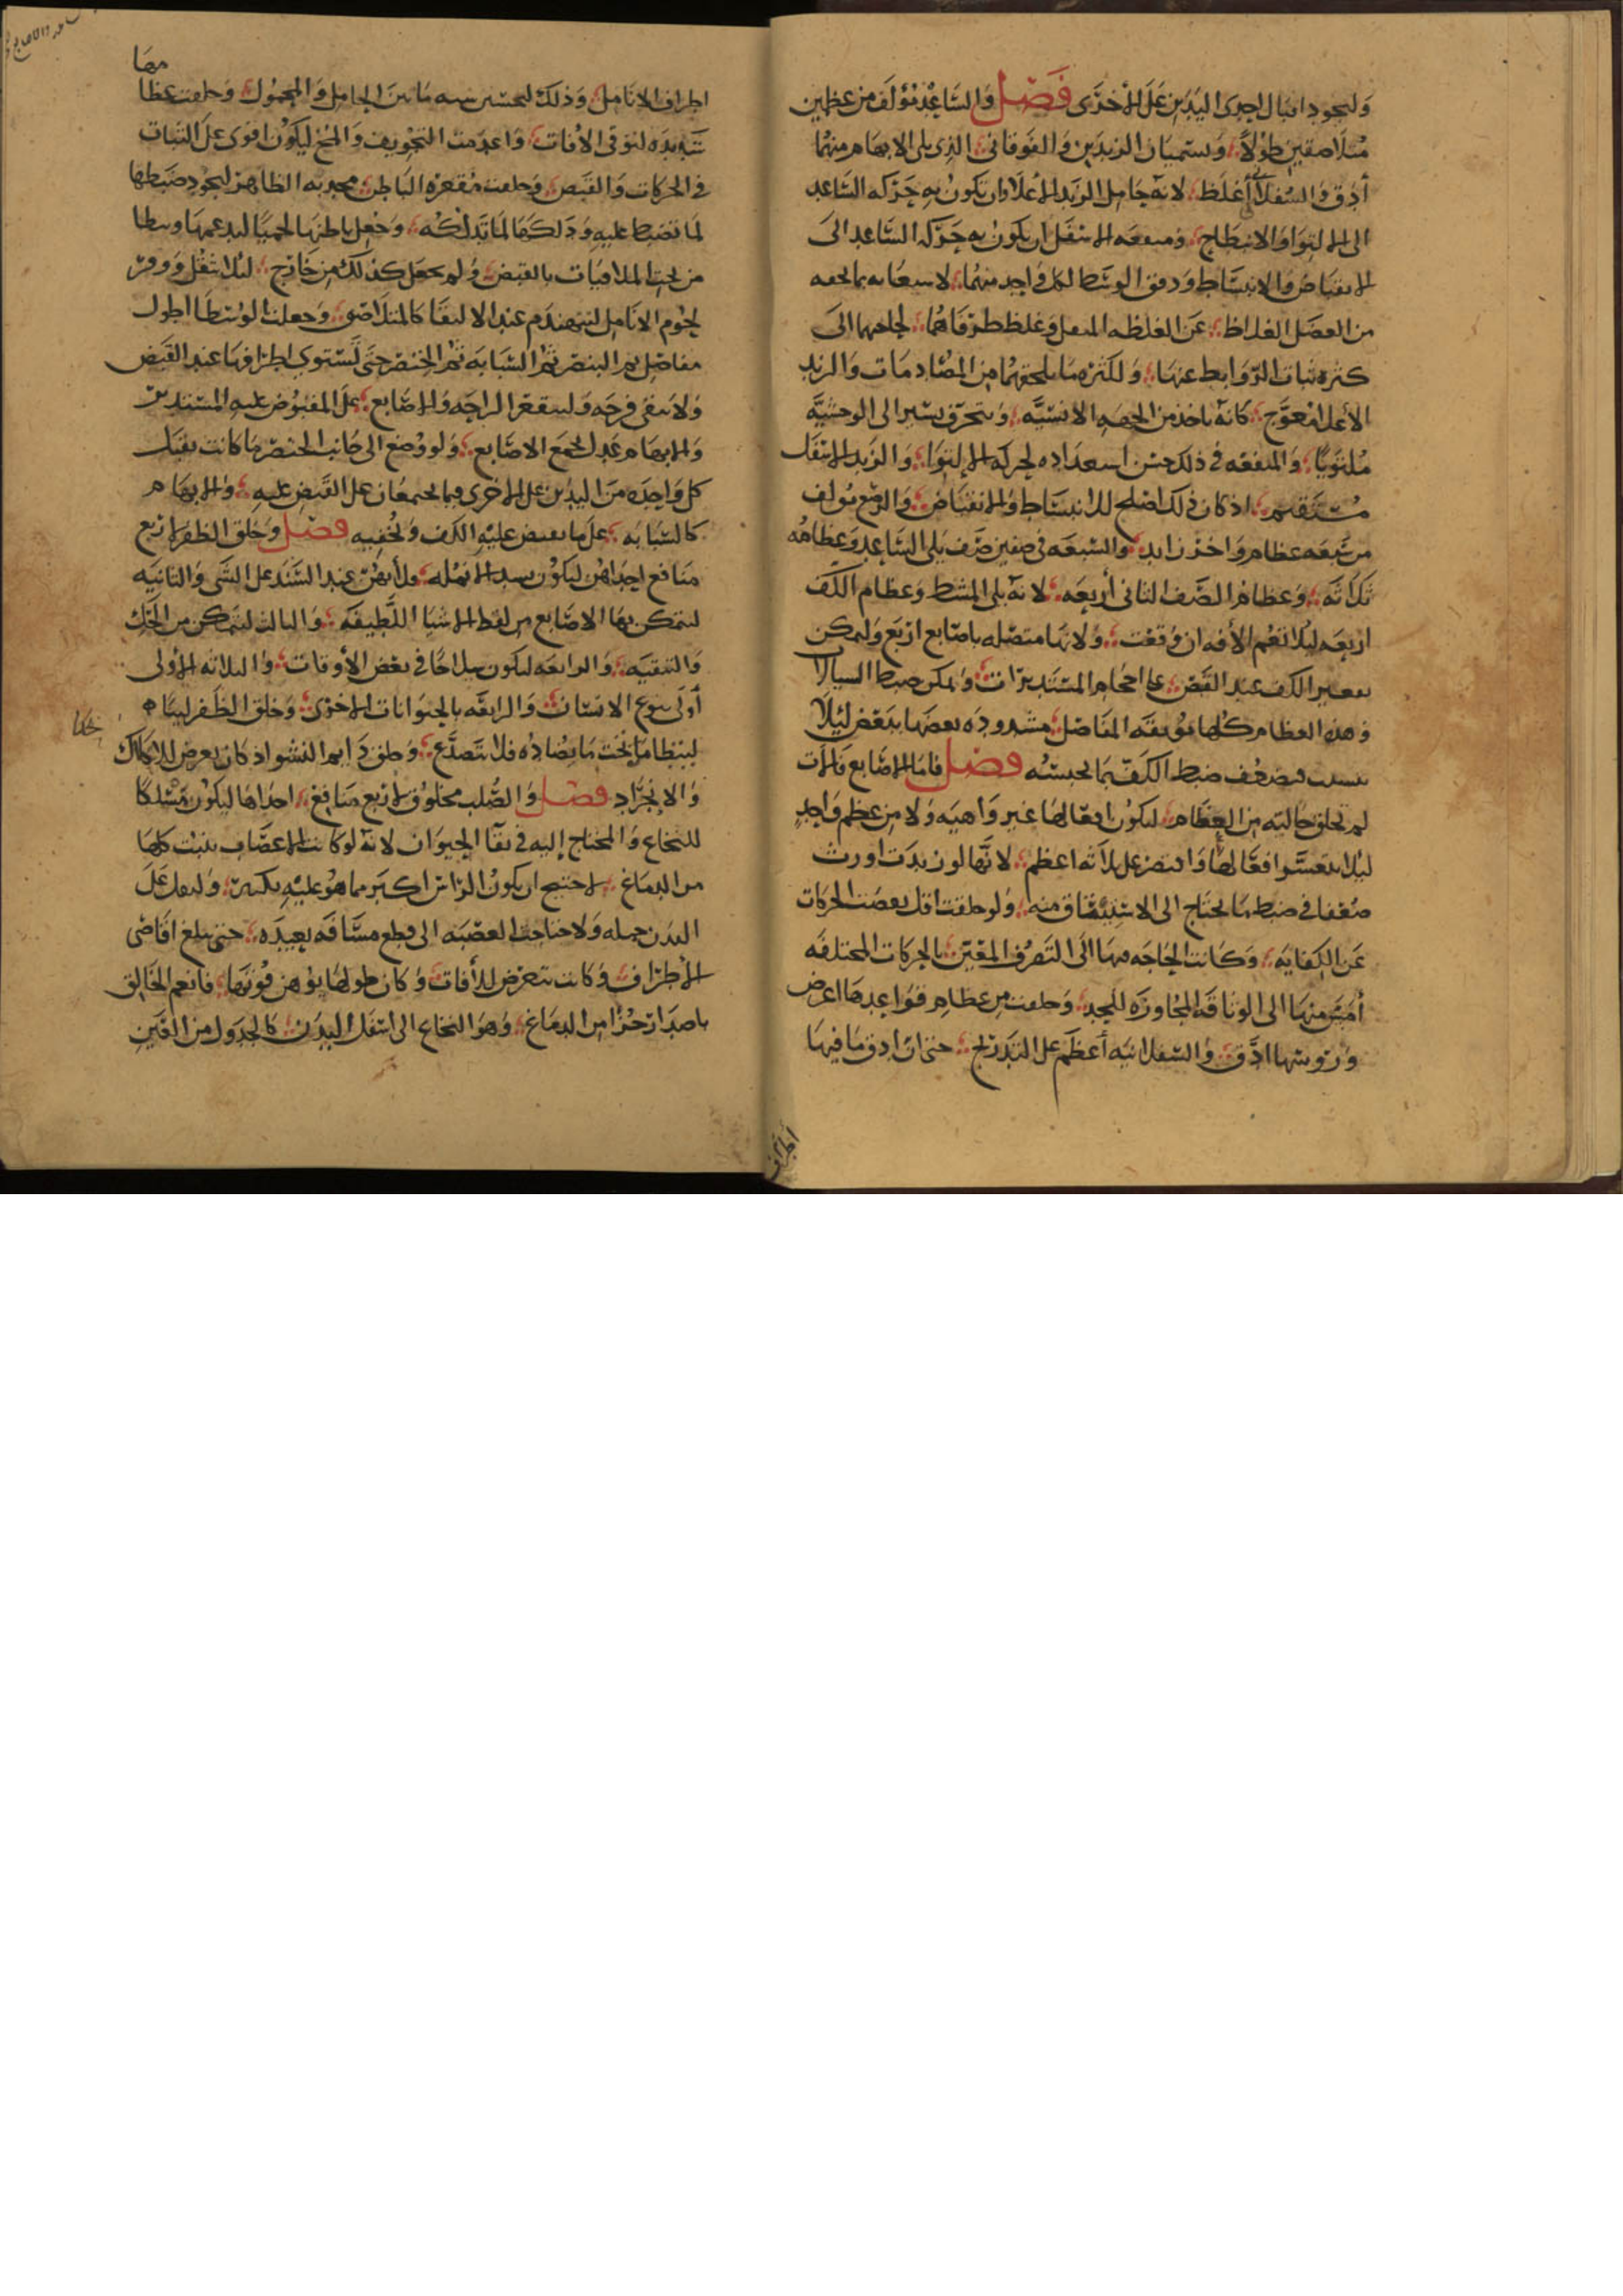 وليجود اقبال احدى اليدين على الأخرى فصل والساعد مؤلف من عظمين
متلاصقين طولا ويسميان الزندين والفوقاني الذي يلي الابهام منهما
أدق والسفلاني أغلظ لانه حامل الزند الأعلا وان تكون به حركه الساعد
الى الالتوا والانبطاح ومنفعه الاسفل ان يكون به حركه الساعد الى
الانقباض والانبساط ودقق الوسط لكل واحد منهما لاستغنائه بما يحفه
من العضل الغلاظ عن الغلظه المثقل وغلظ طرفاهما لحاجتهما الى
كثره نبات الروابط عنها ولكثره ما يلحقهما من المصادمات والزند
الأعلا معوج كانه ياخذ من الجهه الانسيه ويتحرف يسير الى الوحشيه
ملتويا والمنفعه في ذلك حسن استعداده لحركه الالتوا والزند الاسفل
مستقيم اذ كان ذلك اصلح للانبساط والانقباض والرسغ مؤلف
من سبعه عظام واخر زايد والسبعه في صفين صف يلي الساعد وعظامه
ثلاثه وعظام الصف الثاني أربعه لانه يلي المشط وعظام الكف
اربعه ليلا تعم الأفه ان وقعت ولانها متصله باصابع اربع وليمكن
تقعير الكف عند القبض على احجام المستديرات وليمكن ضبط السيالات
وهذه العظام كلها موثقه المفاصل مشدوده بعضها ببعض ليلا
يتشتت فيضعف ضبط الكف بما تحبسه فصل فاما الاصابع فالات
لم تخلق خاليه من العظام لتكون افعالها غير واهيه ولا من عظم واحد
ليلا يتعسر افعالها واقتصر على ثلاثه اعظم لانها لو زيدت اورث
ضعفا في ضبط ما يحتاج الى الاستيثاق منه ولو خلقت اقل نقصت الحركات
عن الكفايه وكانت الحاجه منها الى التصرف المتقن بالحركات المختلفه
أمس منها الى الوثاقه المجاوزه للحد وخلقت من عظام قواعدها اعرض
ورؤسها ادق والسفلانيه أعظم على التدريج حتى ان ادق ما فيها
اطراف
اطراف الانامل وذلك لتحسن نسبه ما بين الحامل والمحمول وخلقت عظامها
شديده لتوقى الأفات واعدمت التجويف والمخ ليكون اقوى على الثبات
في الحركات والقبض وخلقت مقعره الباطن محدبه الظاهر ليجود ضبطها
لما تضبط عليه ودلكها لما تدلكه وجعل باطنها لحميا ليدعمها وينطا
من تحت الملاقيات بالقبض ولم يجعل كذلك من خارج ليلا تثقل ووفر
لحوم الانامل لتتهندم عند الالتقا كالمتلاصق وجعلت الوسطا اطول
مفاصل ثم البنصر ثم السبابه ثم الخنصر حتى تستوي اطرافها عند القبض
ولا يبقى فرجه وليتقعر الراحه والاصابع على المقبوض عليه المستدير
والابهام عدل لجميع الاصابع ولو وضع الى جانب الخنصر ما كانت تقبل
كل واحده من اليدين على الاخرى فيما يجتمعان على القبض عليه والابهام
كالسبابه على ما تقبض عليه الكف وتخفيه فصل وخلق الظفر لاربع
منافع احداهن ليكون سند الانمله ولا يهن عند الشد على الشي والثانيه
لتتمكن بها الاصابع من لقط الاشيا اللطيفه والثالث لتتمكن من الحك
والتنقيه والرابعه ليكون سلاحا في بعض الأوقات والثلاثه الأولى
أولى بنوع الانسان والرابعه بالحيوانات الاخرى وخلق الظفر لينا
لينطامن تحت ما يصادمه فلا يتصدع وخلق دايم النشو اذ كان يعرض للانحكاك
والانجراد فصل والصلب مخلوق لاربع منافع احداها ليكون مسلكا
للنخاع والمحتاج إليه في بقا الحيوان لانه لو كانت الاعصاب تنبت كلها
من الدماغ لاحتيج ان يكون الراس اكبر مما هو عليه بكثير ولثقل على
البدن حمله ولاحتاجت العصبه الى قطع مسافه بعيده حتى تبلغ اقاصى
الأطراف وكانت تتعرض للأفات وكان طولها يوهن قوتها فانعم الخالق
باصدار جزا من الدماغ وهو النخاع الى اسفل البدن كالجدول من العين